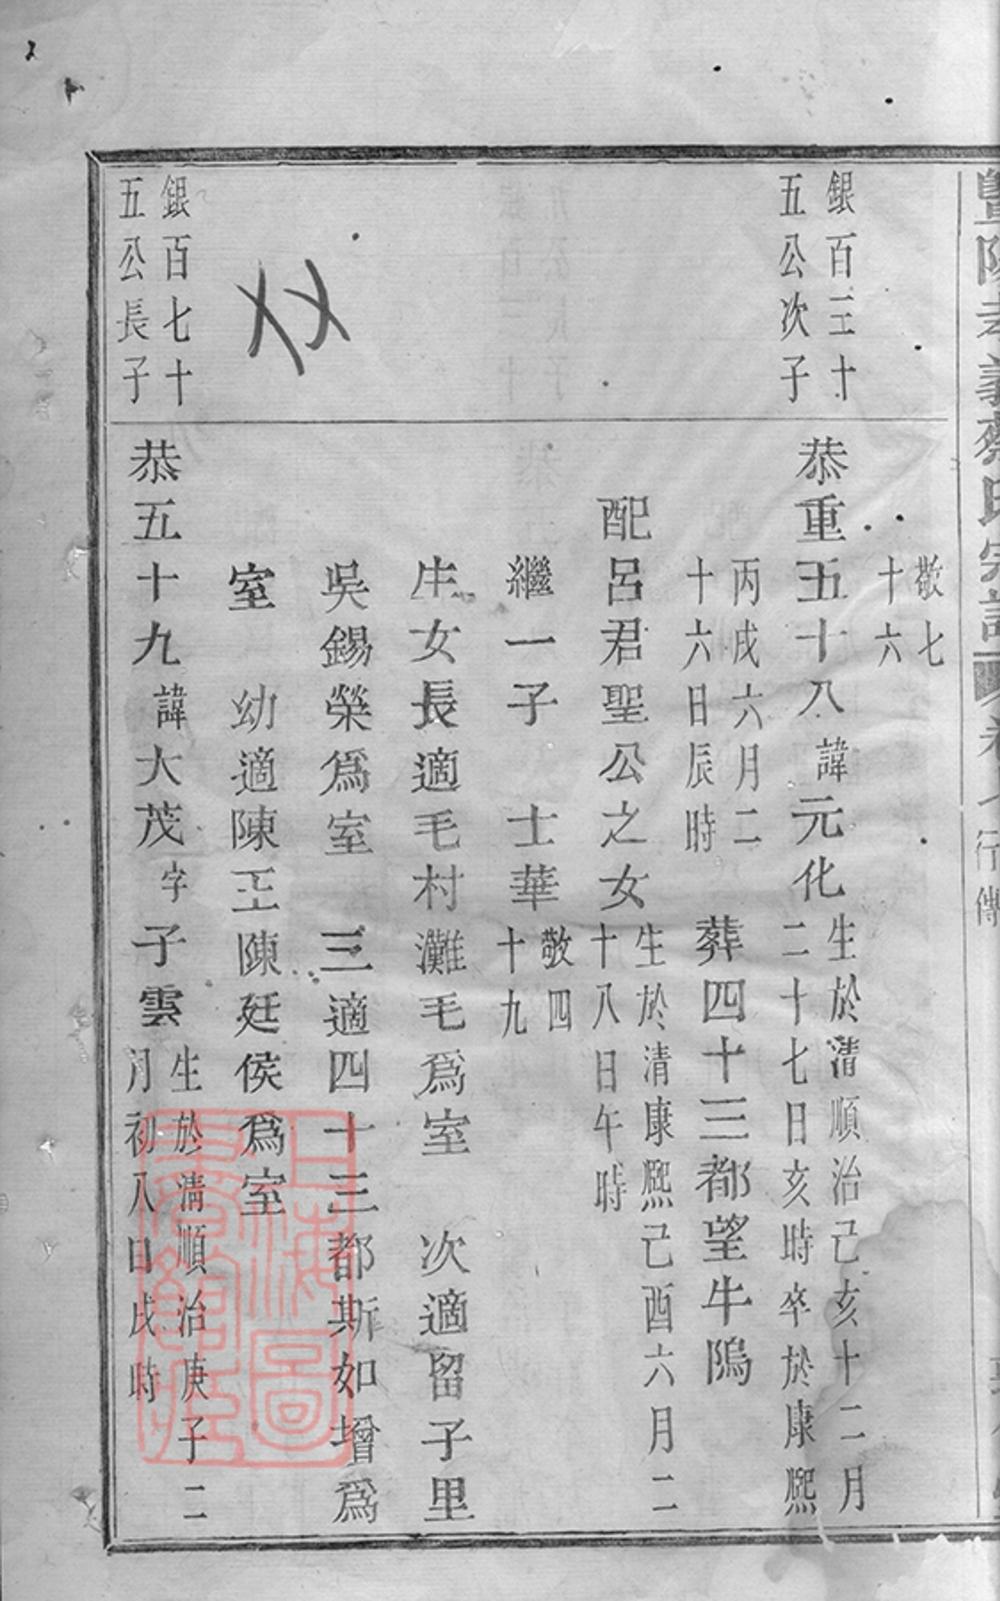 暨陽孝義蔡氏宗譜
行傳
敬七
十六
銀百三十
五公次子
恭重五十八諱元化生於清順治己亥十二月
二十七日亥時卒於康熙
丙戌六月二
十六日辰時
葬四十三都望牛隖
配呂君聖公之女生於清康熙己酉六月二
十八日午時
繼一子 士華敬四
十九
生女長適毛村灘毛爲室 次適留子里
吳錫榮爲室 三適四十三都斯如增爲
室 幼適陳王陳廷侯爲室
銀百七十
五公長子
恭五十九諱大茂字子雲生於清順治庚子二
月初八日戌時
上海圖書館藏